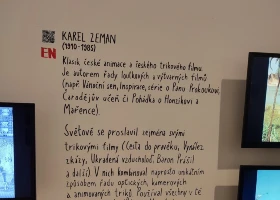 KAREL ZEMAN
(1910-1989)
EN
Klasik české animace a českého trikového filmu.
Je autorem řady loutkových a výtvarných filmů
(např. Vánoční sen, Inspirace, série o Panu Prokoukovi,
Čarodějův učeň či Pohádka o Honzíkovi a
Mařence).
Světově se proslavil zejména svými
trikovými filmy (Cesta do pravěku, Vynález
zkázy, Ukradená vzducholoď, Baron Prášil
a další). V nich kombinoval naprosto unikátním
způsobem řadu optických, kamerových
a animovaných triků. Používal všechny v té